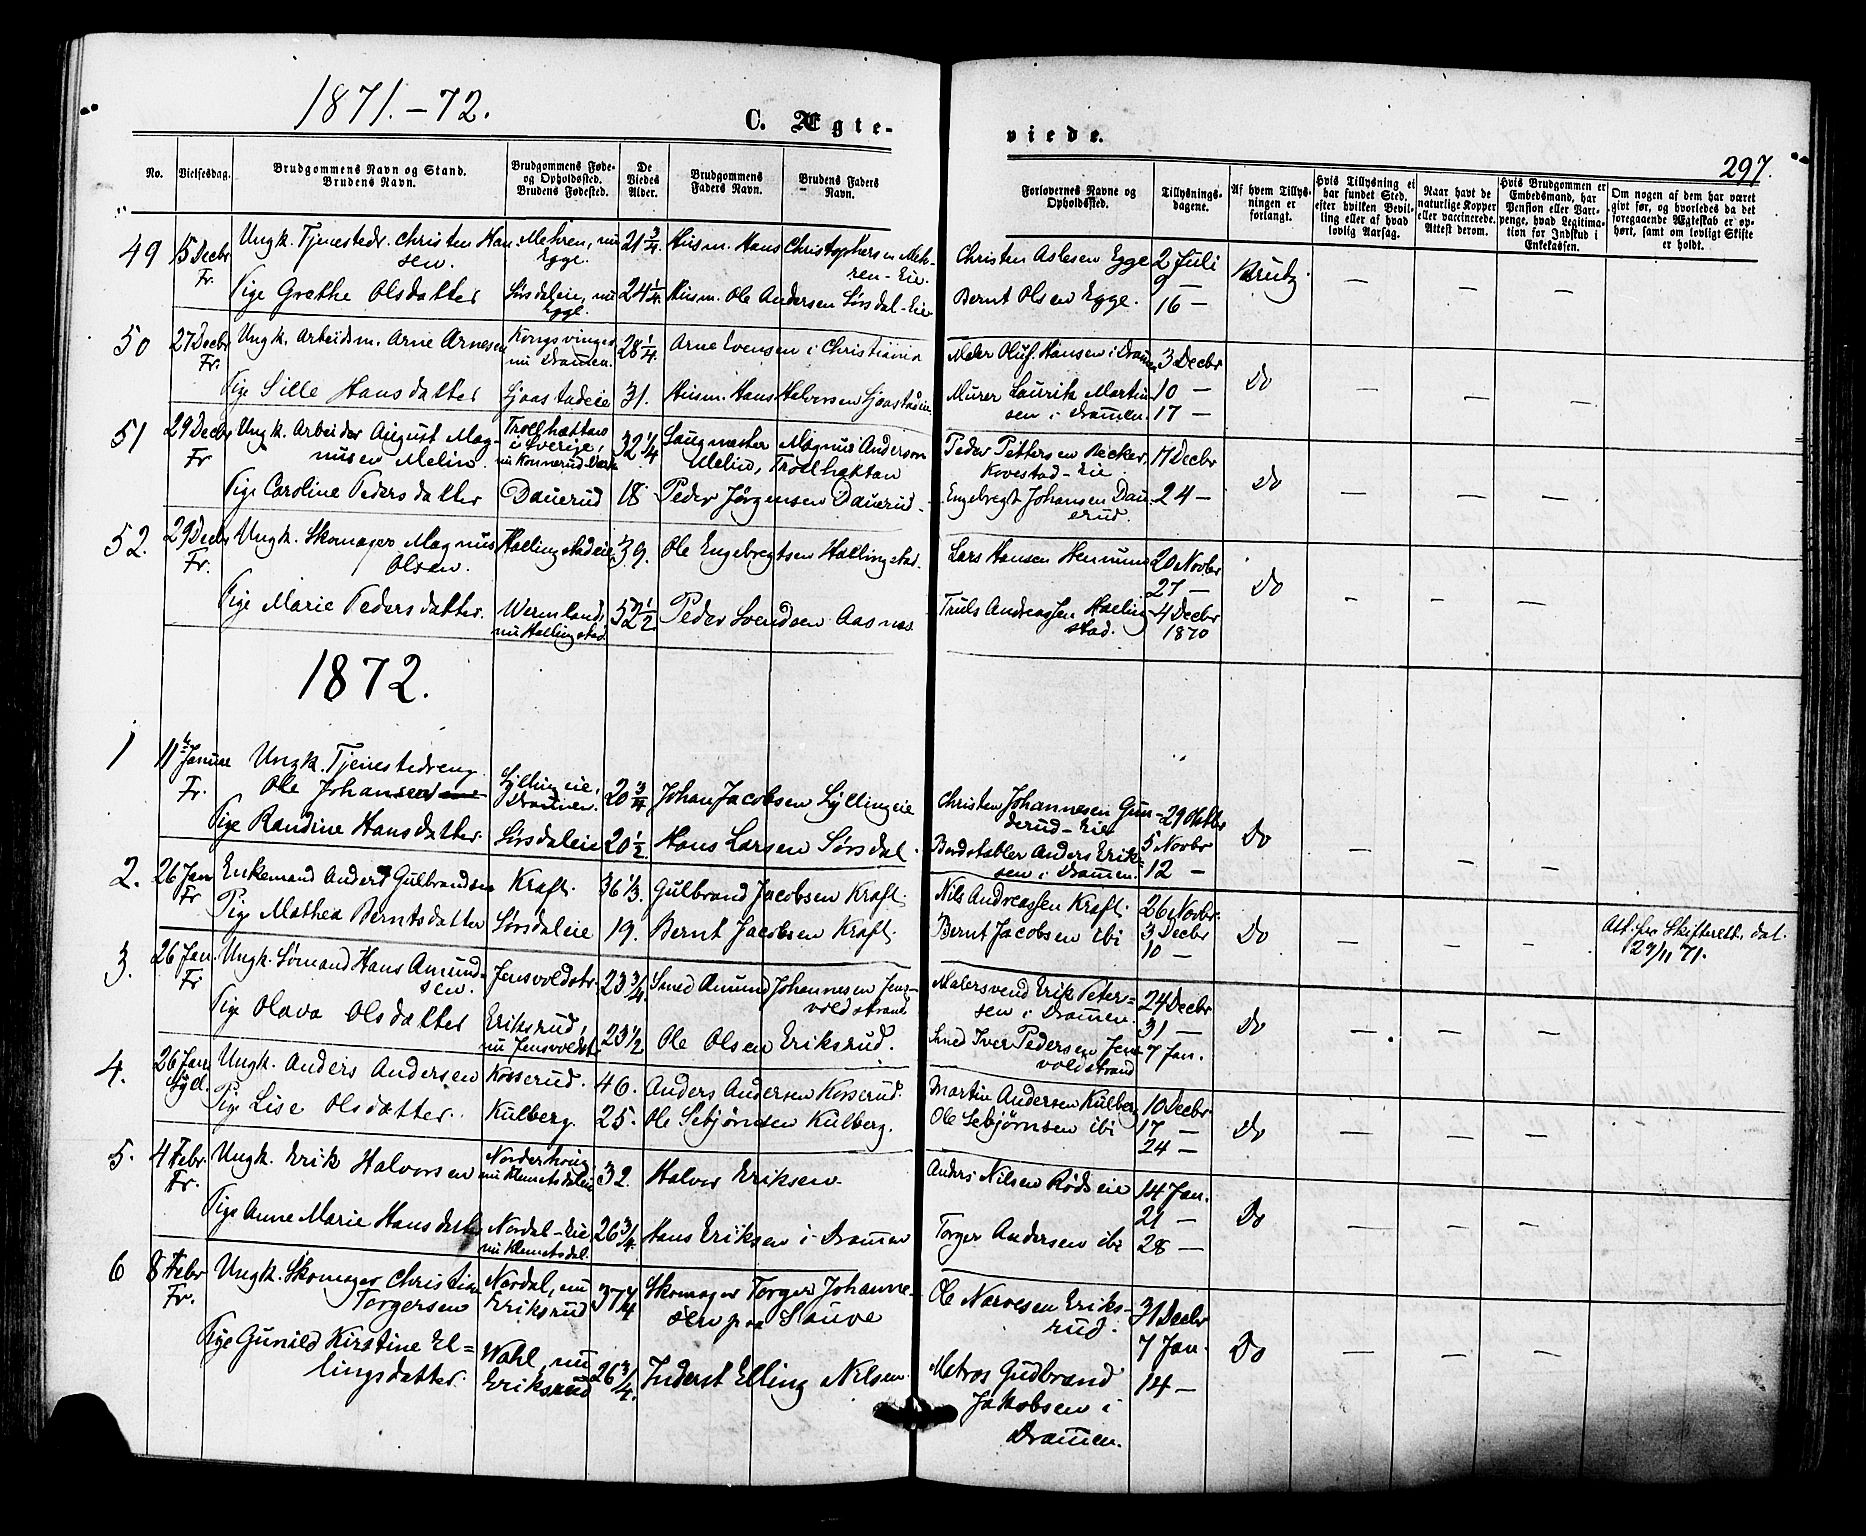 1871.-72.
C. Ægte-
viede.
297.
No.
Vielsesdag.
Brudgommens Navn og Stand.
Brudens Navn.
Brudgommens Føde-
og Opholdssted.
Brudens Fødested.
De
Viedes
Alder.
Brudgommens
Faders Navn.
Brudens Faders
Navn.
Forlovernes Navne og
Opholdssted.
Tillysnings-
dagene.
Af hvem Tillys-
ningen er
forlangt.
Hvis Tillysning ei
har fundet Sted,
efter hvilken Bevil-
ling eller af hvad
lovlig Aarsag.
Naar havt de
naturlige Kopper
eller vaccinerede.
Attest derom.
Hvis Brudgommen er
Embedsmand, har
Pension eller Vart-
penge, hvad Legitima-
tion for Indskud i
Enkekassen.
Om nogen af dem har været
givt før, og hvorledes da det
foregaaende Ægteskab er op-
hørt, samt om lovligt Skifte
er holdt.
49 15 Decbr Fr. Ungk. Tjenestedr. Christen Han
sen. Mehren, nu Egge. 21 3/4 Husm. Hans Christophersen Meh-
ren-Eie. Christen Aslesen Egge 2 Juli
9 —
Pige Grethe Olsdatter Sørsdaleie, nu Egge. 24 1/4 Husm. Ole Andersen Sørsdal-Eie Bernt Olsen Egge. 16 —
50 27 Decbr Fr. Ungk. Arbeidsm. Arne Arnesen Kongsvinger nu Dramen. 28 1/4. Arne Evensen i Christiania Maler Oluf Hansen i Dramen 3 Decbr Do
Pige Sille Hansdatter Sjaastadeie 31. Husm. Hans Halvorsen Sjaastadeie Murer Laurits Martin-
sen i Dramen 10 —
17 —
51 29 Decbr Fr Ungk. Arbeider August Mag-
nusen Melin. Trollhättan i Sverige, nu Konnerud-Værk 32 1/4 Magnus Anderson
Melin, Trollhättan Peder Pettersen
Kovestad-Eie. 17 Decbr Do
Pige Caroline Pedersdatter Dauerud 18 Peder Jørgensen Dauerud Engebregt Johansen Dau-
erud. 24 —
52. 29 Decbr Fr. Ungk. Skomager Magnus
Olsen. Hallingstadeie 39. Ole Engebregtsen Hallingstad. Lars Hansen Hennum 20 Novbr
27 — Do
Pige Marie Pedersdatter. Wermland, nu Hallingstad. 52 1/2 Peder Svendsen Aasnæs Truls Andreassen Halling-
stad. 4 Decbr
1870
1872.
1 11te Januar Fr. Ungk. Tjenestedreng
Ole Johansen Gyllingeie, Dramen. 20 3/4 Johan Jacobsen Gyllingeie Christen Johannesen Gun-
derud-Eie 29 Oktbr
Pige Randine Hansdatter. Sørsdaleie 20 1/2 Hans Larsen Sørsdal. Bordstabler Anders Erik-
sen i Dramen. 5 Novbr
12 — Do
2. 26 Jan Fr Enkemand Anders Gulbrandsen Kraft. 36 1/3. Gulbrand Jacobsen Kraft. Nils Andreassen Kraft. 26 Novbr.
Pige Mathea Berntsdatter Sørsdaleie 19. Bernt Jacobsen Kraft. Bernt Jacobsen ibi 3 Decbr
10 — Do Att. fra Skifterett. dat.
29/11 71.
3. 26 Jan. Fr Ungk. Sømand Hans Amund-
sen. Jensvoldstr. 23 3/4. Smed Amund Johannesen Jens-
voldstrand Malersvend Erik Peter-
sen i Dramen. 24 Decbr
31 — Do
Pige Olava Olsdatter Eriksrud, nu Jensvoldstr. 23 1/2 Ole Olsen Eriksrud. Smed Iver Pedersen Jens-
voldstrand 7 Jan.
4. 26 Jan Syd. Ungk. Anders Andersen Kosserud. 46. Anders Andersen Kosserud. Martin Andersen Kulberg 10 Decbr.
Pige Lise Olsdatter. Kulberg. 25. Ole Sebjørnsen Kulberg. Ole Sebjørnsen ibi 17 —
24 — Do
5. 4 Febr. Fr. Ungk. Erik Halvorsen Norderhoug, nu Klemetsdaleie 32. Halvor Eriksen. Anders Nilsen Rødseie 14 Jan.
21 — Do
Pige Anne Marie Hansdatter Nordal-Eie nu Klemetsdal. 26 3/4. Hans Eriksen i Dramen Torger Andersen ibi 28 —
6 8 Febr Fr. Ungk. Skomager Christian
Torgersen Nordal, nu Eriksrud 37 1/4 Skomager Torger Johanne-
sen paa Ole Narvesen Eriks-
rud. 31 Decbr
7 Jan. Do
Pige Gunild Kirstine El-
lingsdatter. Wahl, nu Eriksrud 26 3/4. Inderst Elling Nilsen Matros Gudbrand
Jakobsen i
Dramen. 14 —